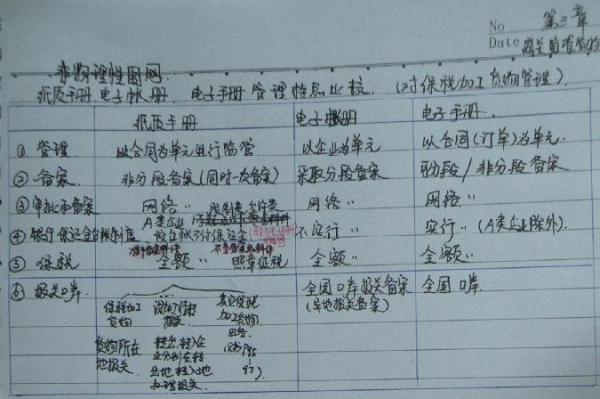 No 第三章
Date
非物理性围网
纸质手册.电子帐册. 电子手册管理特点比较. (对保税加工货物管理)
纸质手册 电子帐册 电子手册
① 管理 以合同为单元进行监管 以企业为单元 以合同(订单)为单元.
② 备案 非分段备案(同时一次备案) 采取分段备案 分段/非分段备案
③ 审批和备案 网络 〃 网络 〃 网络 〃
A类企业
④ 银行保证金台帐制度 不实行 〃 实行 〃 (A类企业除外).
⑤ 保税 全额 〃 照章征税 全额 〃 全额 〃
⑥ 报关口岸 全国口岸报关备案 全国口岸.
(异地报关备案)
保税加工 深加工结转 其它保税
货物 报关 加工货物
货物所在 转出、转入
地报关. 业分别在转
出地、转入地
办理报关.